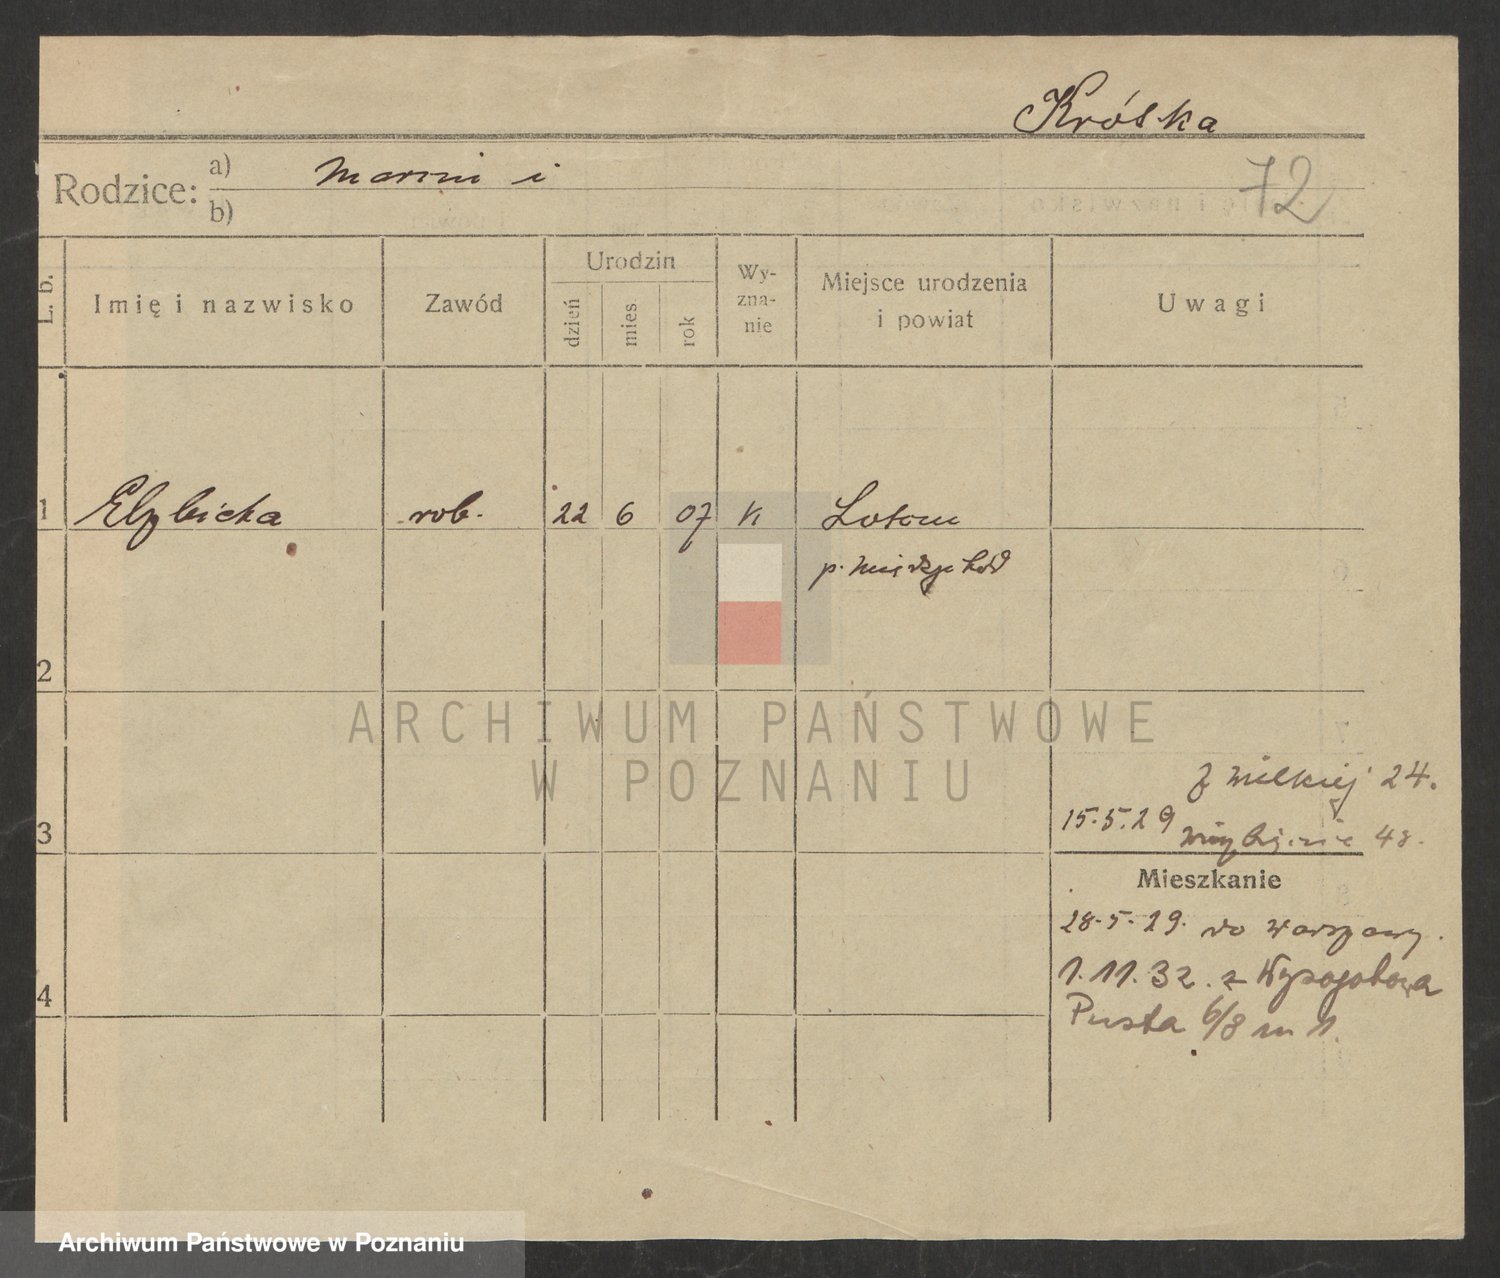 Króska
72
Rodzice: a) Marcin i
b)
L. b.
Imię i nazwisko
Zawód
Urodzin
dzień
mies
rok
Wy-
zna-
nie
Miejsce urodzenia
i powiat
Uwagi
1 Elżbieta rob. 22 6 07 K Lutom
p. Międzychód
2
ARCHIWUM PAŃSTWOWE
W POZNANIU
z Wilkiej 24.
3
15.5.29 48.
Mieszkanie
28.5.29. do Warszawy.
1.11.32. z Wysogotowa
4
Pusta 6/8 m 1.
Archiwum Państwowe w Poznaniu